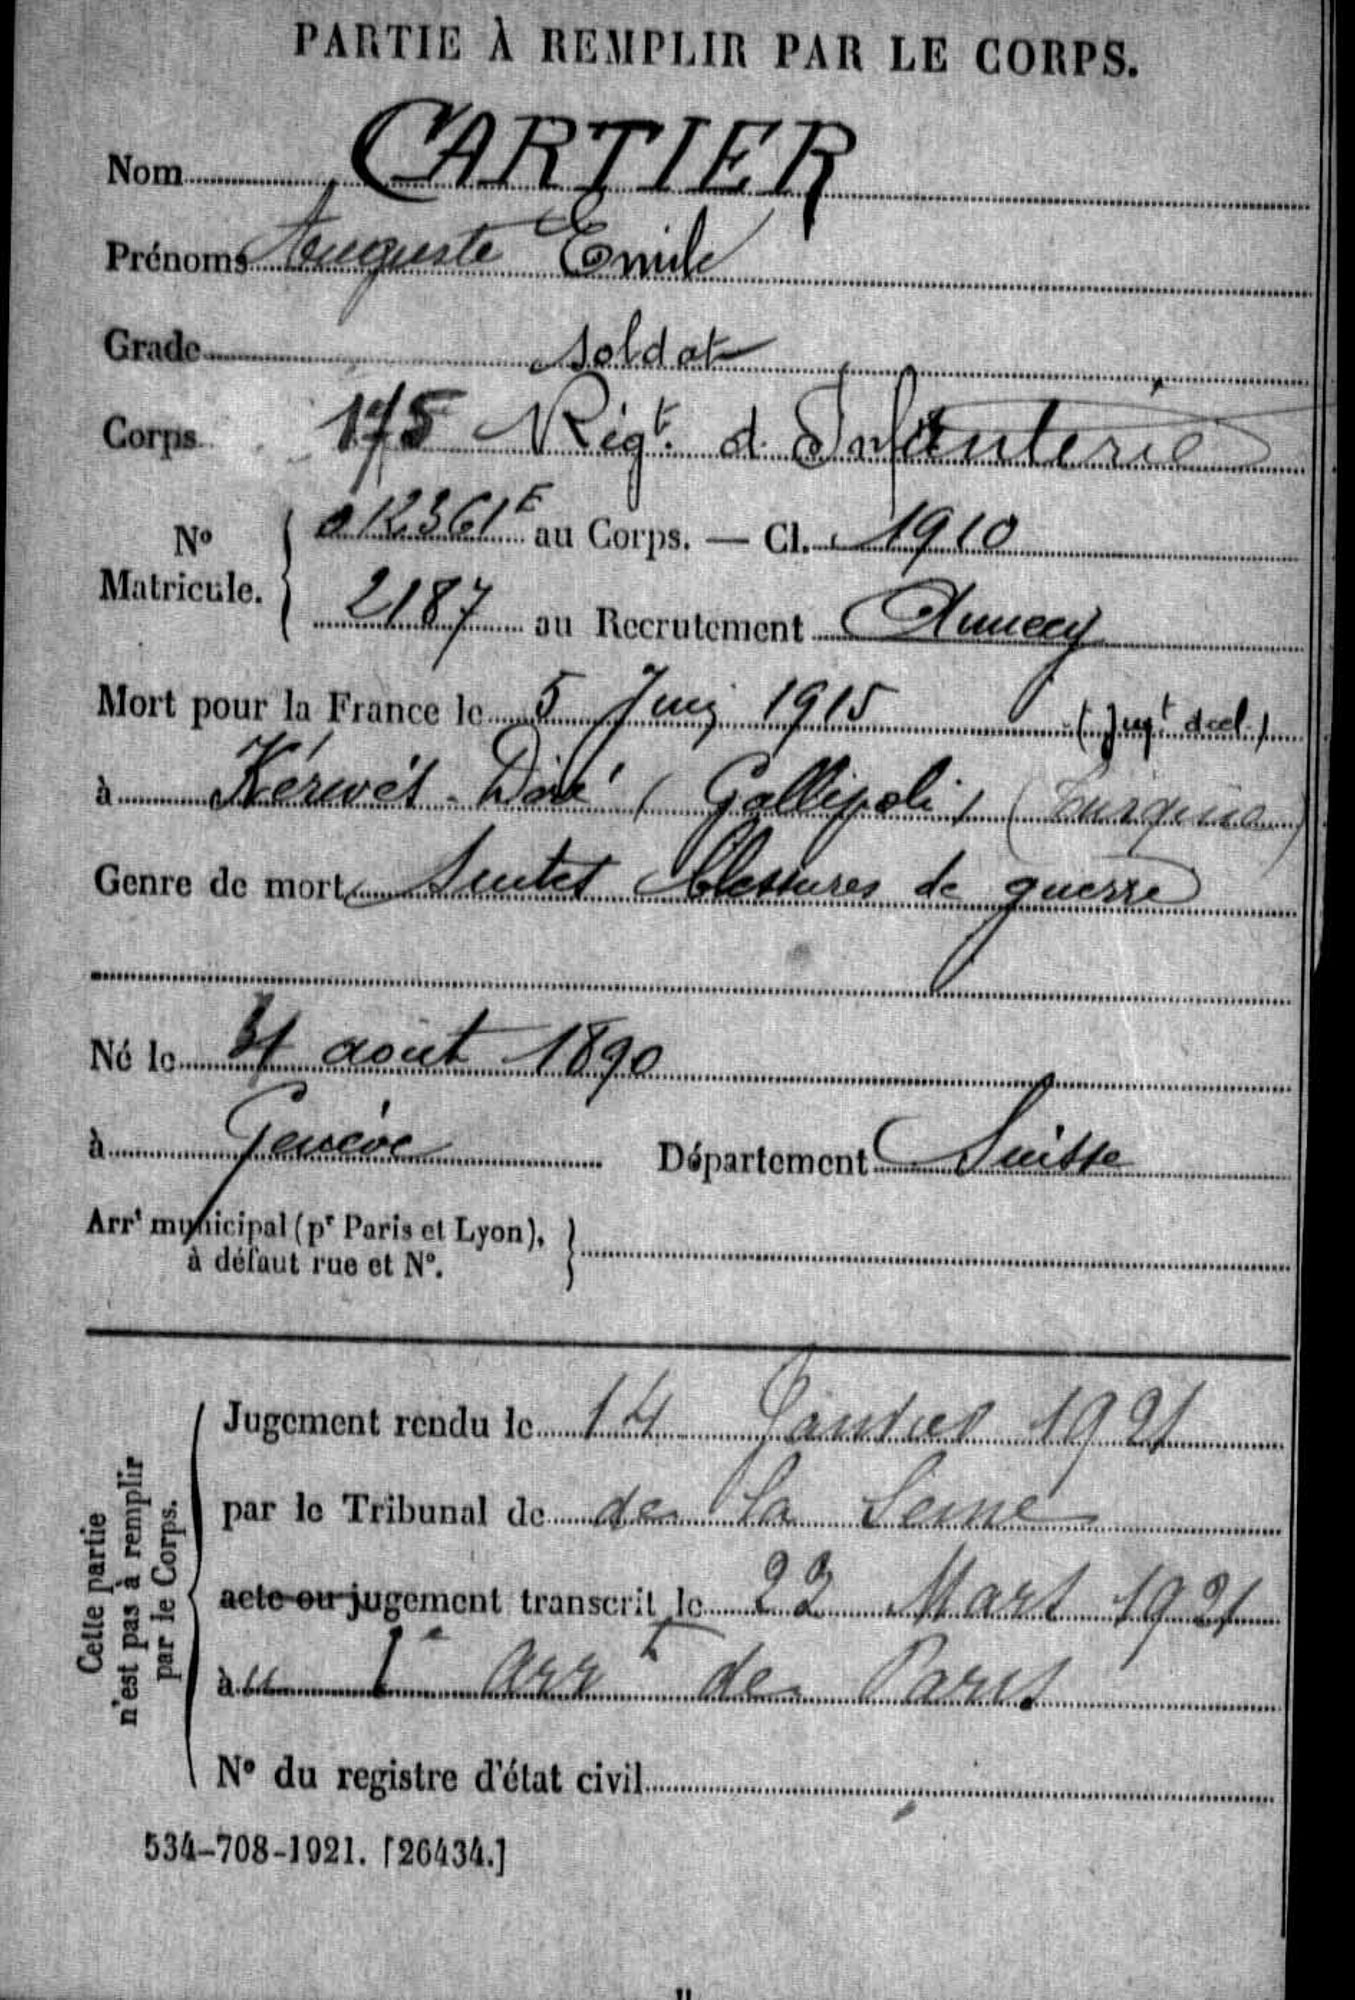 PARTIE À REMPLIR PAR LE CORPS.
Nom CARTIER
Prénoms Auguste Emile
Grade soldat
Corps 175 Régt. d'Infanterie
No Matricule. { 012361E au Corps. — Cl. 1910
2187 au Recrutement Annecy
Mort pour la France le 5 Juin 1915 (Jugt decl.)
à Kérevés-Déré (Gallipoli) (Turquie)
Genre de mort Suites blessures de guerre
Né le 4 août 1890
à Genève Département Suisse
Arrt municipal (pr Paris et Lyon), à défaut rue et No. }
Cette partie n'est pas à remplir par le Corps.
Jugement rendu le 14 Janvier 1921
par le Tribunal de de la Seine
acte ou jugement transcrit le 22 Mars 1921
au 1e arrt de Paris
No du registre d'état civil
534-708-1921. [26434.]